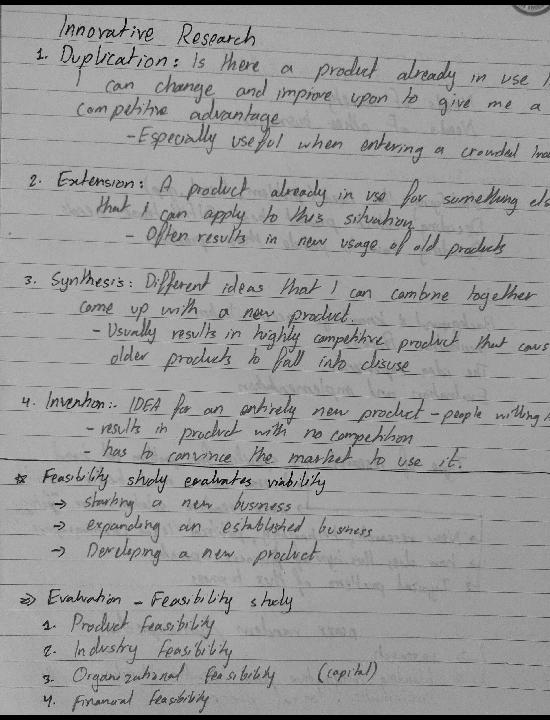 Innovative Research
1. Duplication: Is there a product already in use
I can change and improve upon to give me a
competitive advantage
- Especially useful when entering a crowded
2. Extension: A product already in use for something
that I can apply to this situation
- Often results in new usage of old products
3. Synthesis: Different ideas that I can combine together
come up with a new product.
- Usually results in highly competitive product that
older products to fall into disuse
4. Invention:- IDEA for an entirely new product - people willing
- results in product with no competition
- has to convince the market to use it.
* Feasibility study evaluates viability
→ starting a new business
→ expanding an established business
→ Developing a new product
⇒ Evaluation - Feasibility study
1. Product feasibility
2. Industry feasibility
3. Organizational feasibility (capital)
4. Financial feasibility